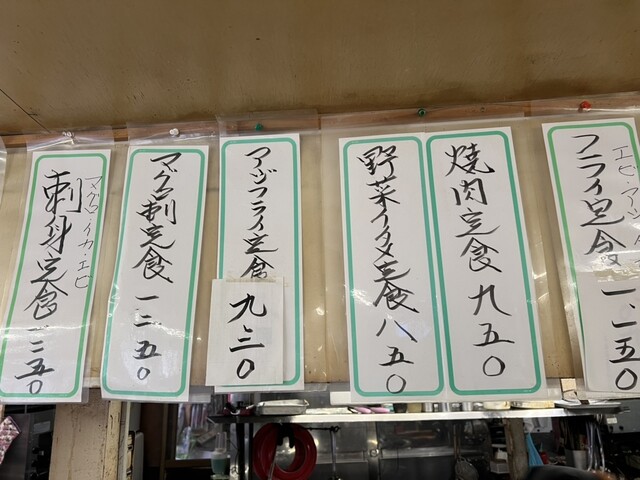 エビ・アジ
フライ定食 一、一五〇
焼肉定食 九五〇
野菜イタメ定食 八五〇
アジフライ定食 九三〇
マグロ刺定食 一二五〇
マグロ・イカ・エビ
刺身定食 一三五〇